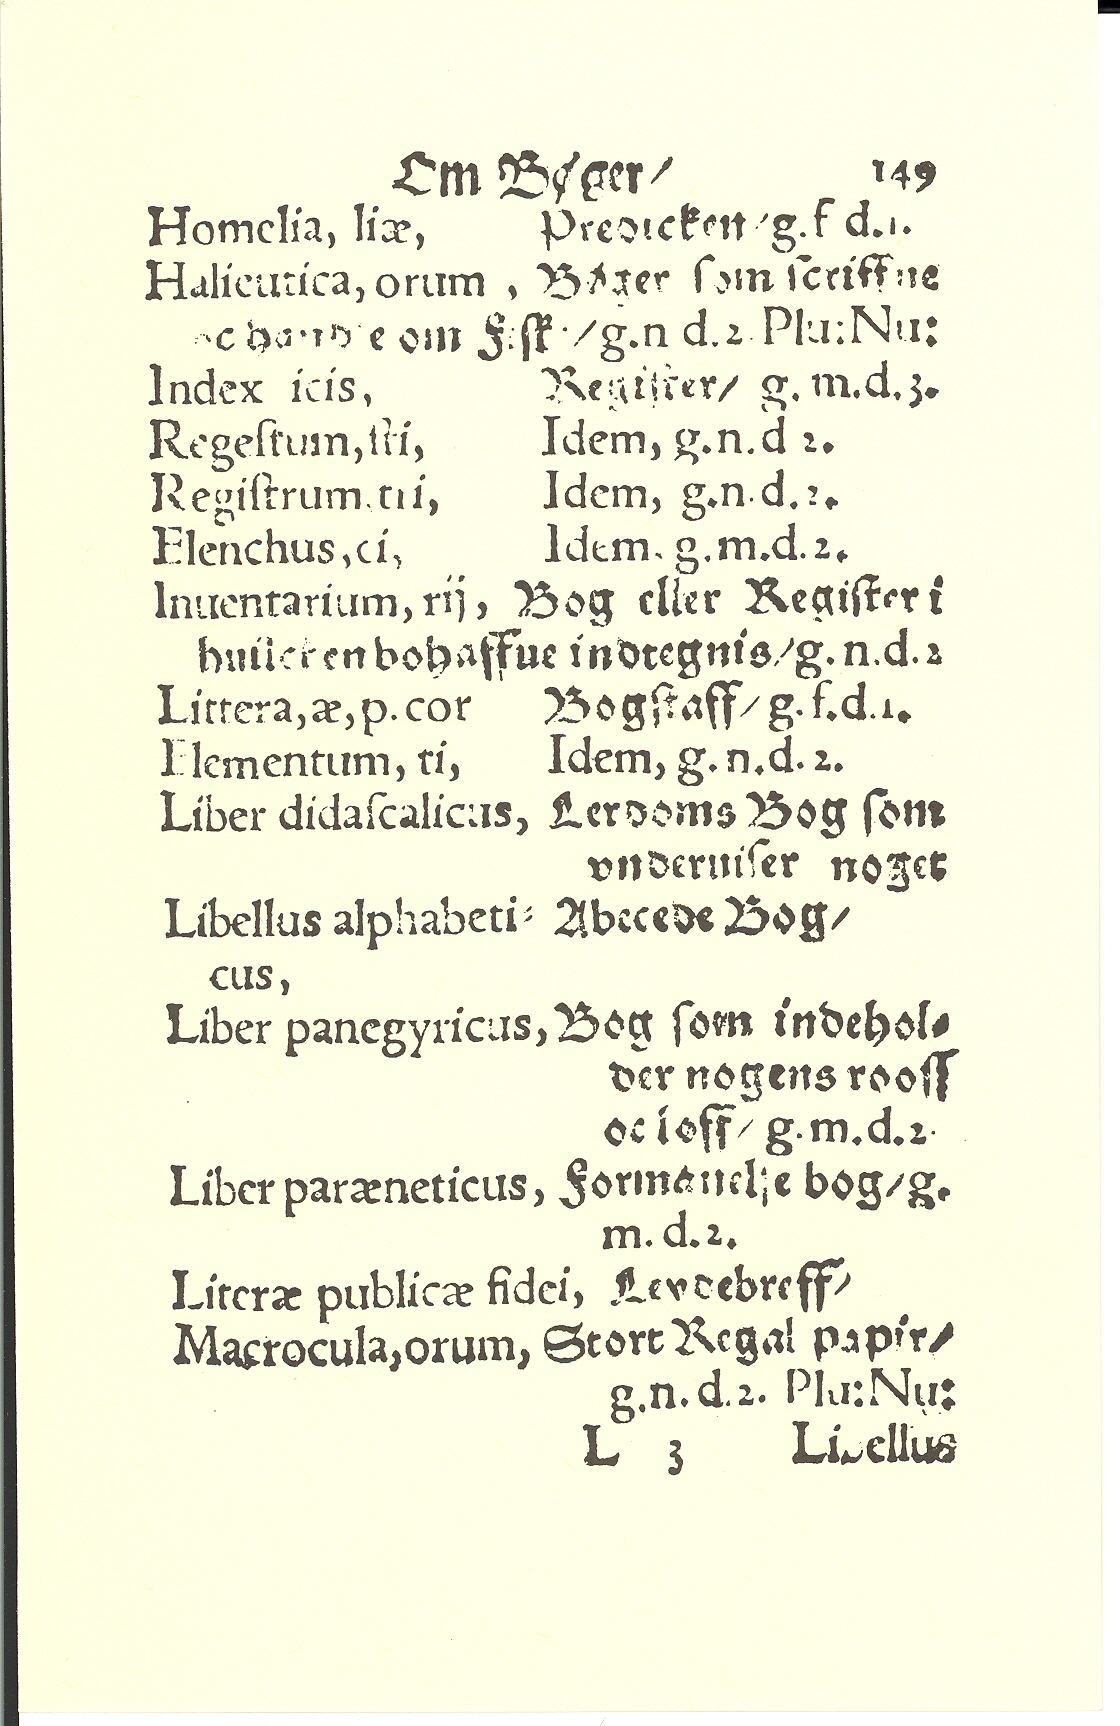 Om Bøger/ 149
Homelia, liæ, Predicken/g.f d.1.
Halieutica, orum, Bøger som scriffne
oc handle om Fisk/g.n d.2. Plu:Nu:
Index icis, Register/ g. m.d.3.
Regeſtum,ſti, Idem, g.n.d 2.
Regiſtrum.tri, Idem, g.n.d.2.
Elenchus,ci, Idem. g.m.d.2.
Inuentarium, rij, Bog eller Regiſter i
huilcken bohaffue indtegnis/g.n.d.2
Littera,æ,p.cor Bogſtaff/g.f.d.1.
Elementum, ti, Idem, g.n.d.2.
Liber didaſcalicus, Lerdoms Bog ſom
vnderuiſer noget
Libellus alphabeti⸗ Abccede Bog/
cus,
Liber panegyricus, Bog ſom indehol⸗
der nogens rooſſ
oc loff/ g.m.d.2.
Liber paræneticus, Formanelſe bog/g.
m.d.2.
Literæ publicæ fidei, Leydebreff/
Macrocula,orum, Stort Regal papir/
g.n.d.2. Plu:Nu:
L 3 Libellus